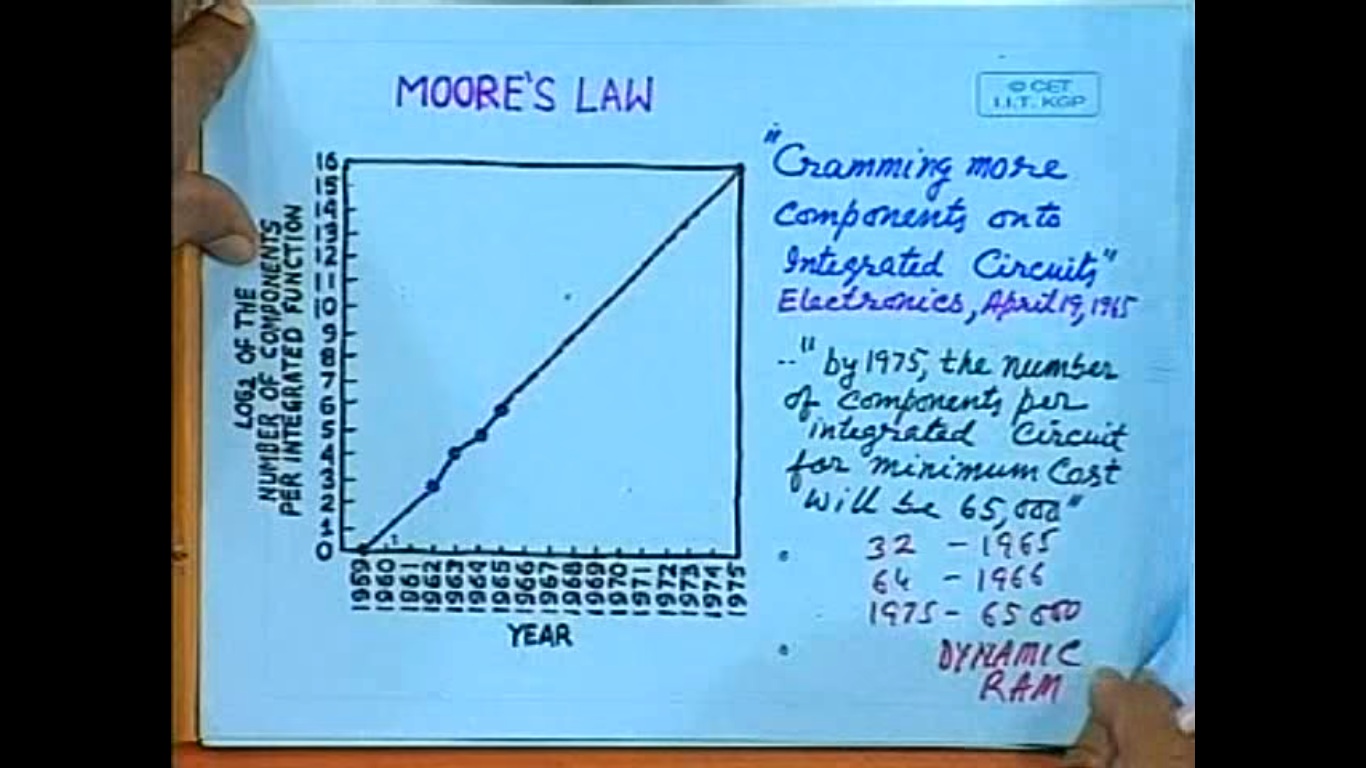 MOORE'S LAW
© CET
I.I.T. KGP
LOG2 OF THE
NUMBER OF COMPONENTS
PER INTEGRATED FUNCTION
16
15
14
13
12
11
10
9
8
7
6
5
4
3
2
1
0
1959
1960
1961
1962
1963
1964
1965
1966
1967
1968
1969
1970
1971
1972
1973
1974
1975
YEAR
"Cramming more
components onto
Integrated Circuits"
Electronics, April 19, 1965
.."by 1975, the number
of components per
integrated circuit
for minimum cost
will be 65,000"
32 - 1965
64 - 1966
1975 - 65000
DYNAMIC
RAM